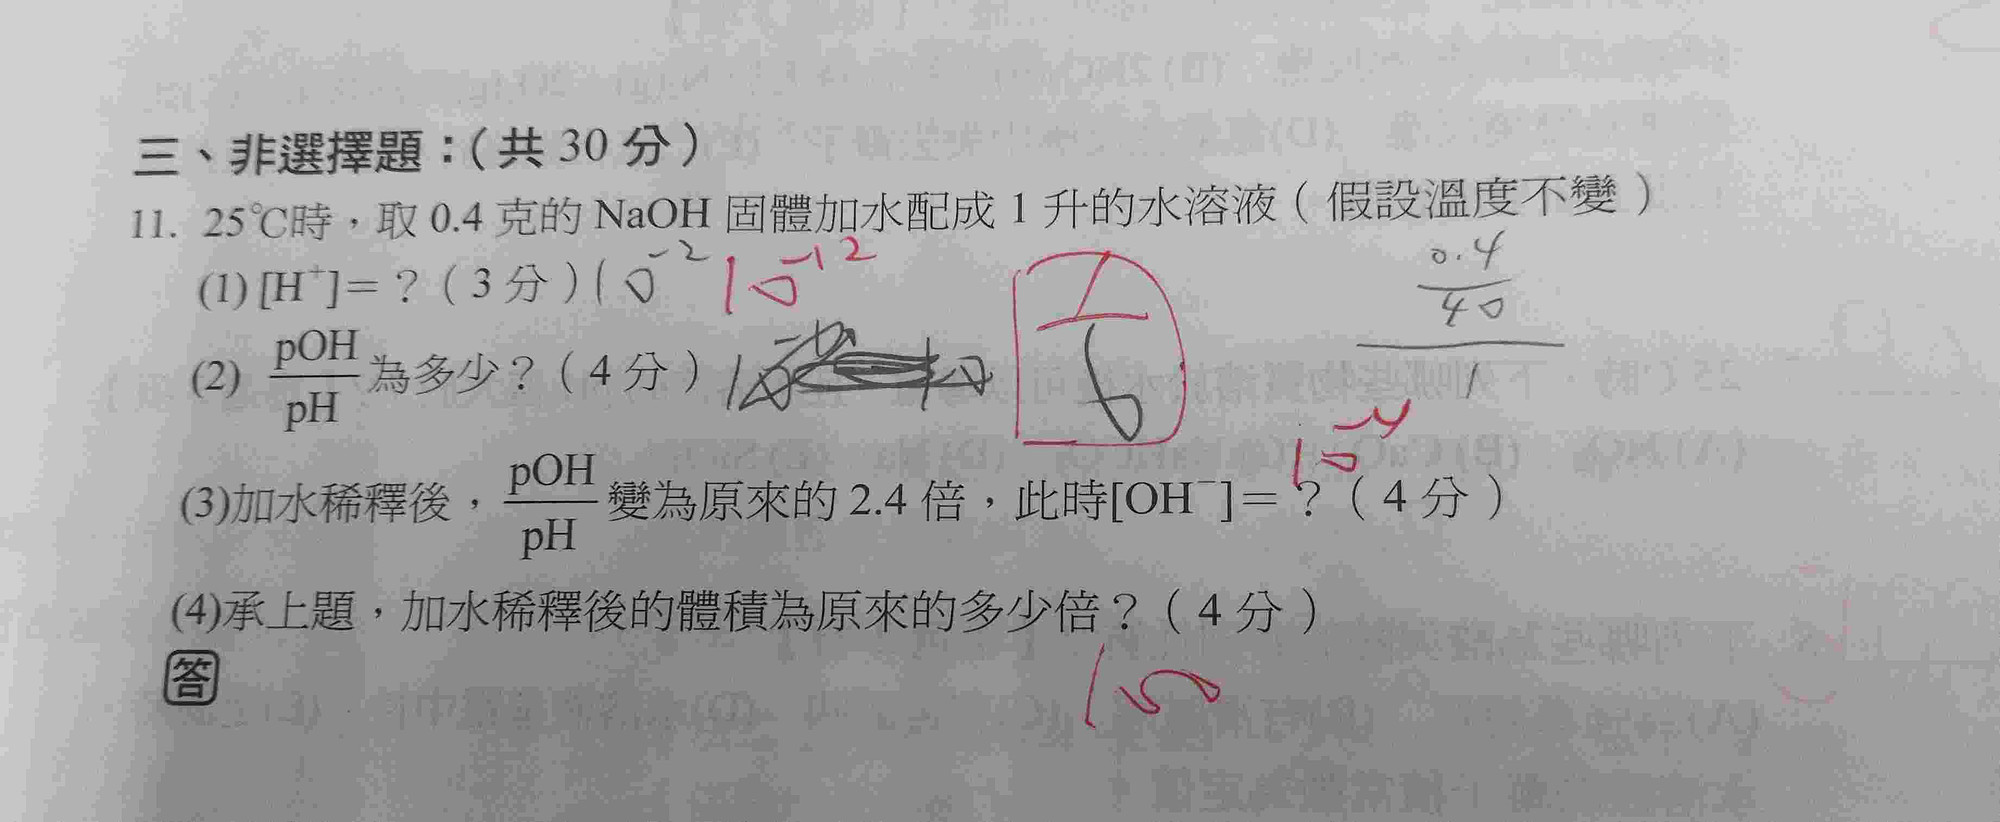 三、非選擇題：(共 30 分)
11. 25℃時，取 0.4 克的 NaOH 固體加水配成 1 升的水溶液（假設溫度不變）
(1) [H⁺]＝？（3 分）10⁻² 10⁻¹²
0.4
40
1
(2) pOH/pH 為多少？（4 分）
1
6
(3)加水稀釋後，pOH/pH 變為原來的 2.4 倍，此時[OH⁻]＝？（4 分）
10⁻⁴
(4)承上題，加水稀釋後的體積為原來的多少倍？（4 分）
答
100